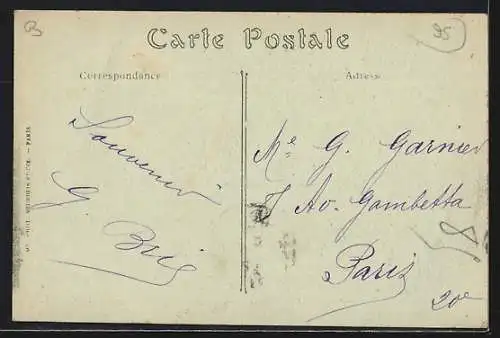 Carte Postale
Correspondance
Adresse
95
B
Souvenir
G. Brie
Me G. Garnier
7 Av. Gambetta
Paris
20e
PARIS